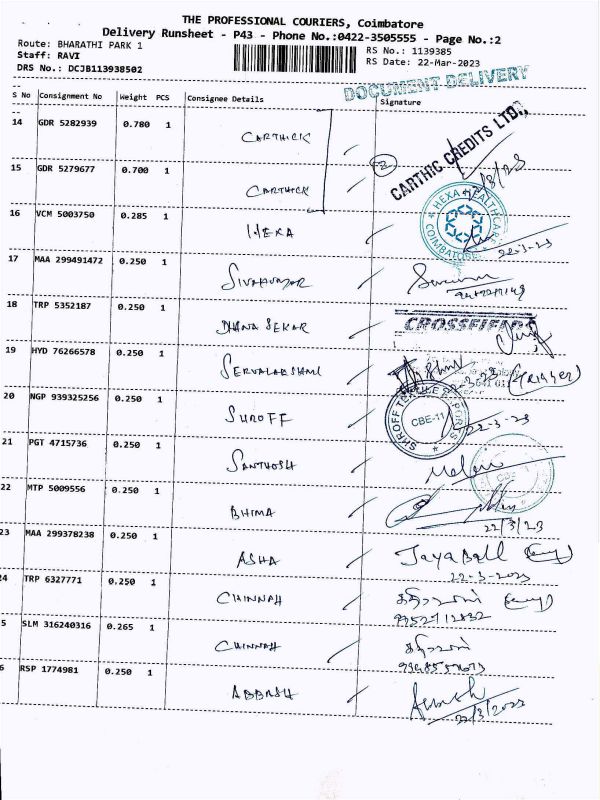 THE PROFESSIONAL COURIERS, Coimbatore
Delivery Runsheet - P43 - Phone No.:0422-3505555 - Page No.:2
Route: BHARATHI PARK 1
RS No.: 1139385
Staff: RAVI
RS Date: 22-Mar-2023
DRS No.: DCJB113938502
DOCUMENT DELIVERY
S No Consignment No Weight PCS Consignee Details Signature
14 GDR 5282939 0.780 1 CARTHICK
CARTHIC CREDITS LTD.,
15 GDR 5279677 0.700 1 CARTHICK
2
16 VCM 5003750 0.285 1 HEXA
HEXA HEALTHCARE COIMBATORE
22-3-23
17 MAA 299491472 0.250 1 SIVAKUMAR
18 TRP 5352187 0.250 1 DHANA SEKAR
CROSSFIELDS
19 HYD 76266578 0.250 1 SERVALAKSHMI
20 NGP 939325256 0.250 1 SHROFF
SHROFF TEXTILE EXPORTS CBE-11
22-3-23
21 PGT 4715736 0.250 1 SANTHOSH
22 MTP 5009556 0.250 1 BHIMA
22/3/23
23 MAA 299378238 0.250 1 ASHA Jayabell
22-3-2023
24 TRP 6327771 0.250 1 CHINNAH
9952712832
5 SLM 316240316 0.265 1 CHINNAH
6 RSP 1774981 0.250 1 ABBASH
22/3/2023